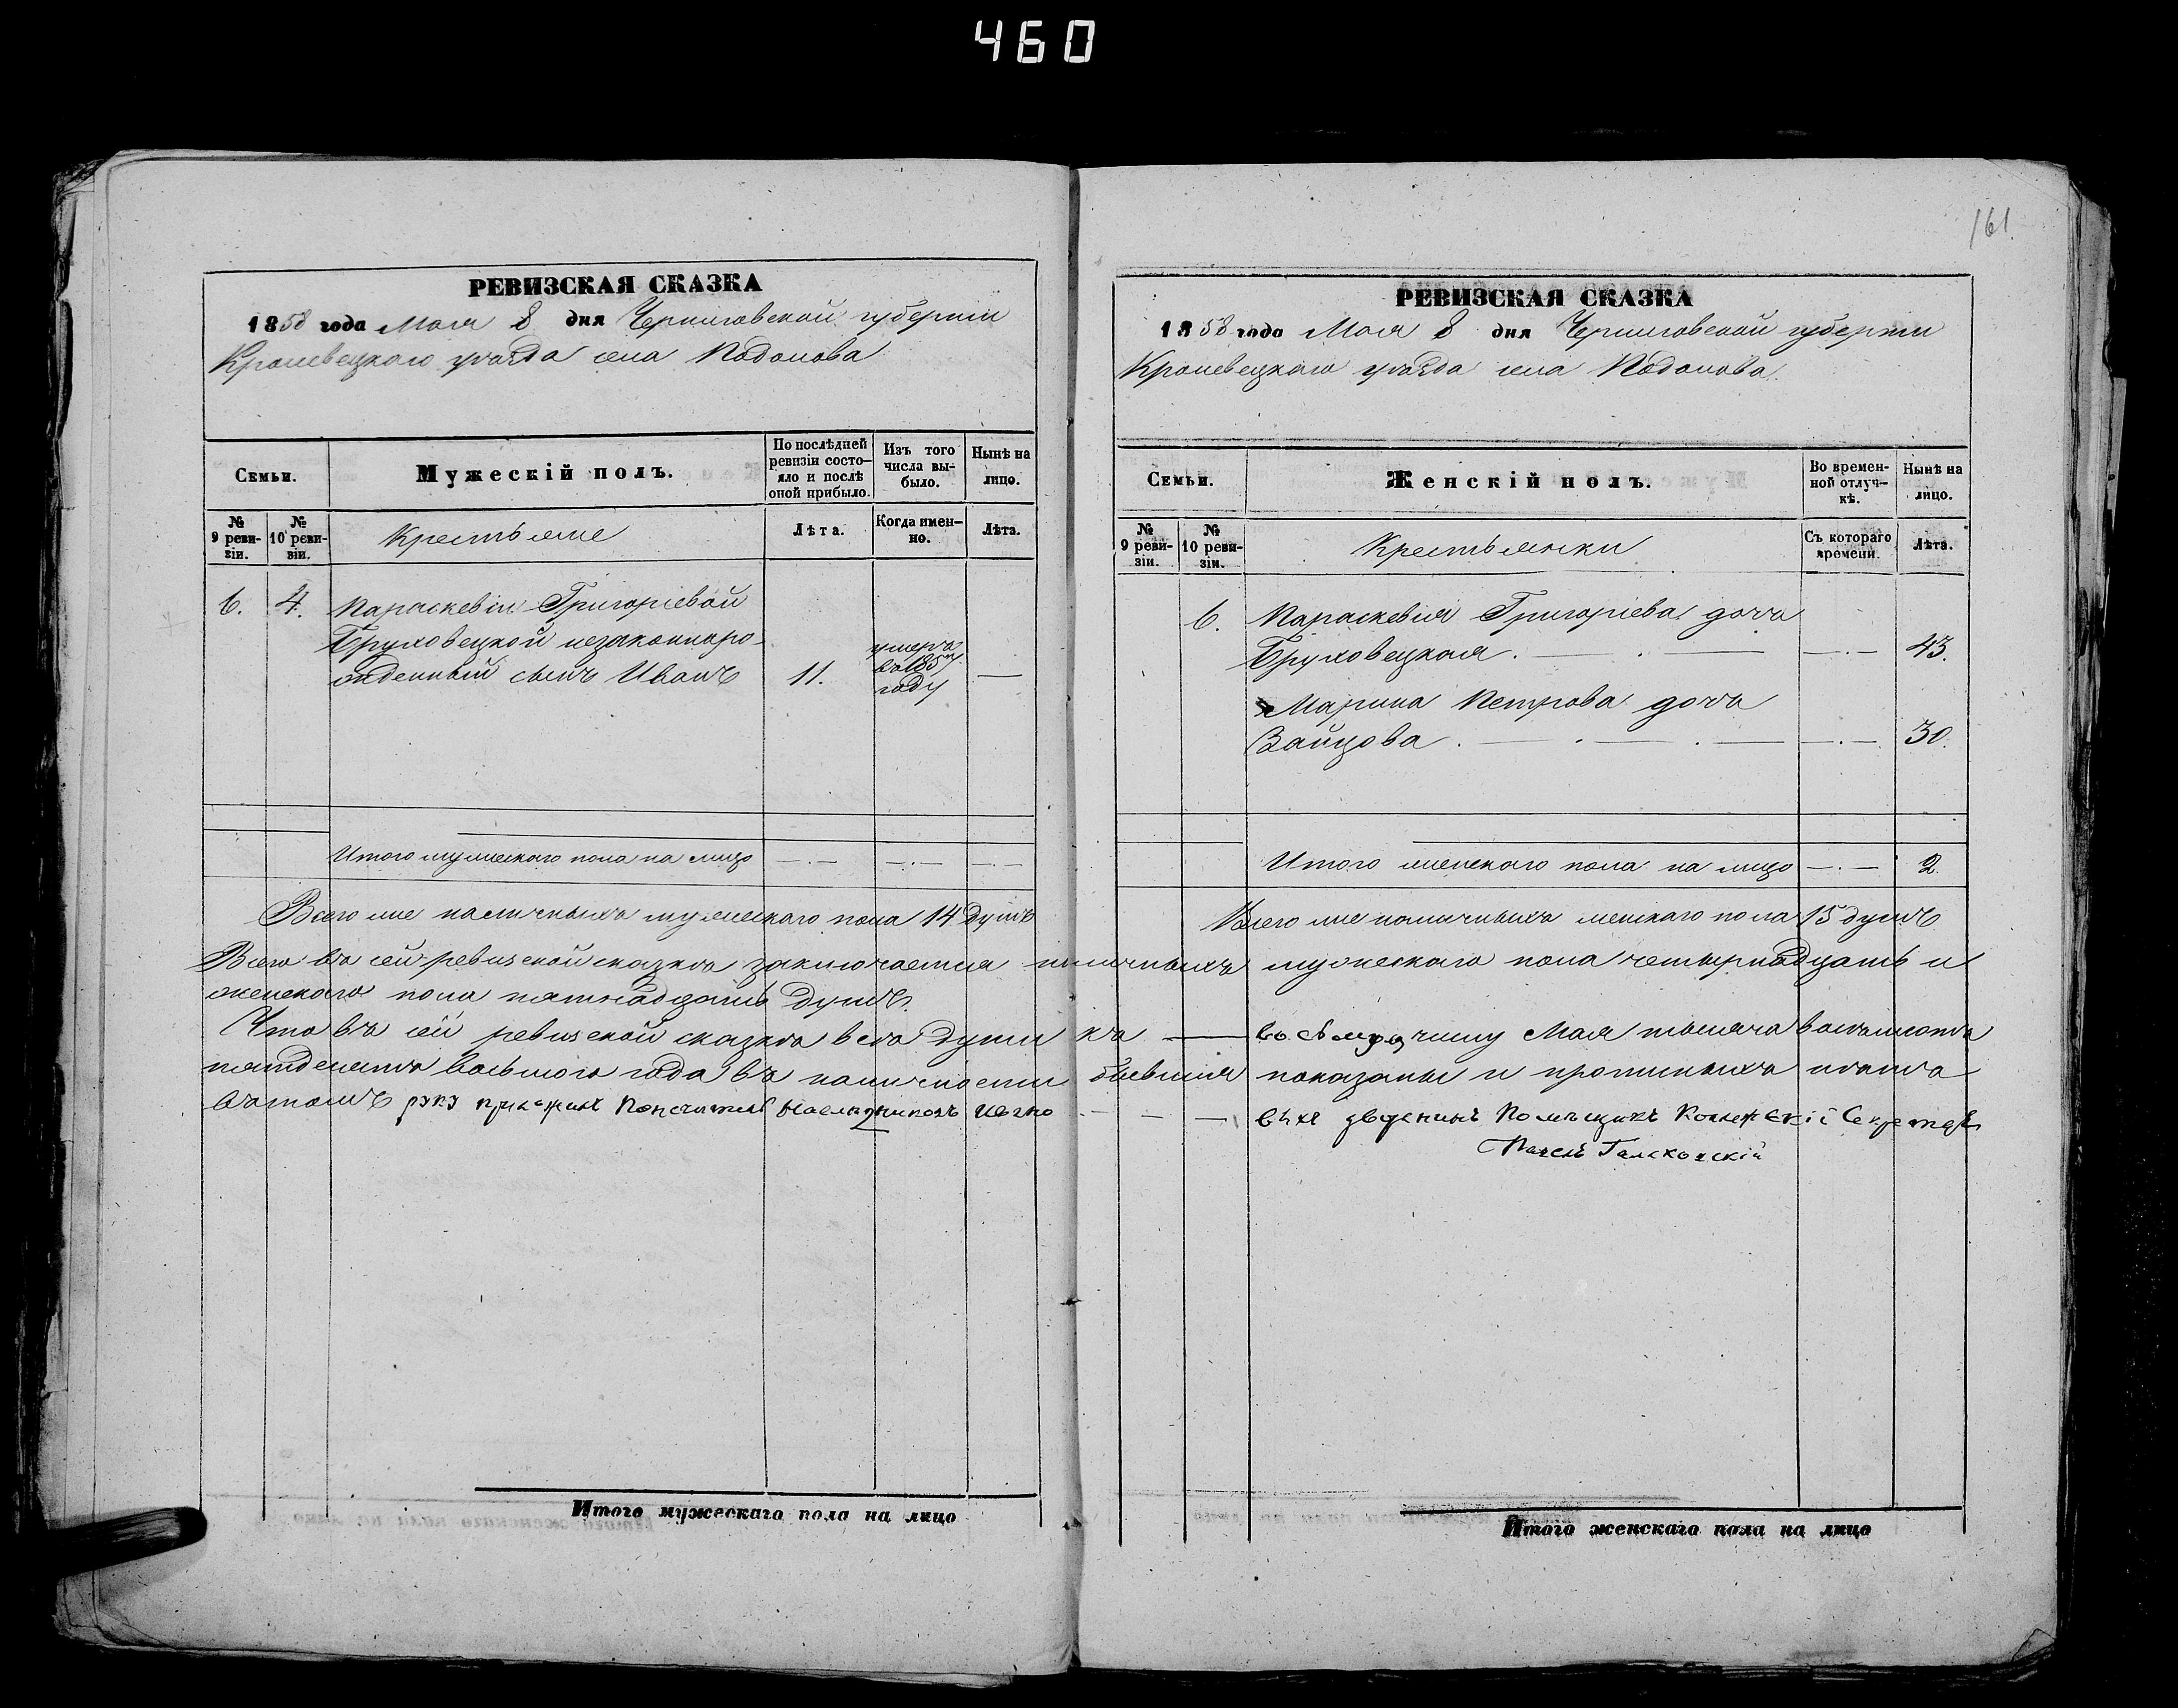 460
161.
РЕВИЗСКАЯ СКАЗКА
1858 года Мая 8 дня Черниговской губерніи
Кролевецкаго уѣзда села Подолова
Семьи.
Мужескій полъ.
По послѣдней ревизіи состояло и послѣ оной прибыло.
Изъ того числа выбыло.
Нынѣ на лицо.
№ 9 ревизіи.
№ 10 ревизіи.
Крестьяне
Лѣта.
Когда именно.
Лѣта.
6. 4. Параскевіи Григоріевой
Бруховецкой незаконноро-
жденный сынъ Иванъ 11. умеръ въ 185 году —
Итого мужескаго пола на лицо
Всего же наличныхъ мужескаго пола 14 душъ
РЕВИЗСКАЯ СКАЗКА
1858 года Мая 8 дня Черниговской губерніи
Кролевецкаго уѣзда села Подолова.
Семьи.
Женскій полъ.
Во временной отлучкѣ.
Нынѣ на лицо.
№ 9 ревизіи.
№ 10 ревизіи.
Крестьянки
Съ котораго времени.
Лѣта.
6. Параскевія Григоріева дочь
Бруховецкая. 43.
Марина Петрова дочь
Зайцова. 30.
Итого женскаго пола на лицо 2.
Всего же наличныхъ женскаго пола 15 душъ
Всего въ сей ревизской сказкѣ заключается наличныхъ мужескаго пола четырнадцать и
женскаго пола пятнадцать душъ.
Что въ сей ревизской сказкѣ всѣ души къ — восьмому числу Мая тысяча восемьсотъ
пятдесятъ восьмого года въ наличности бывшія показаны и прописныхъ нѣтъ
вътомъ руку приложилъ Попечитель Помѣщикъ Колежскій Секретарь
Павелъ
Итого мужескаго пола на лицо
Итого женскаго пола на лицо